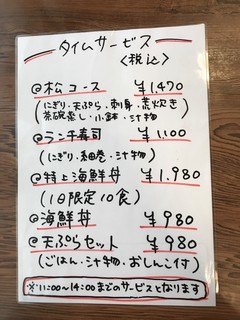 タイムサービス
<税込>
@松コース ¥1,470
(にぎり・天ぷら・刺身・荒炊き
茶碗蒸し・小鉢・汁物)
@ランチ寿司 ¥1100
(にぎり・細巻・汁物)
@特上海鮮丼 ¥1,980
(1日限定10食)
@海鮮丼 ¥980
@天ぷらセット ¥980
(ごはん・汁物・おしんこ付)
※11:00～14:00までのサービスとなります